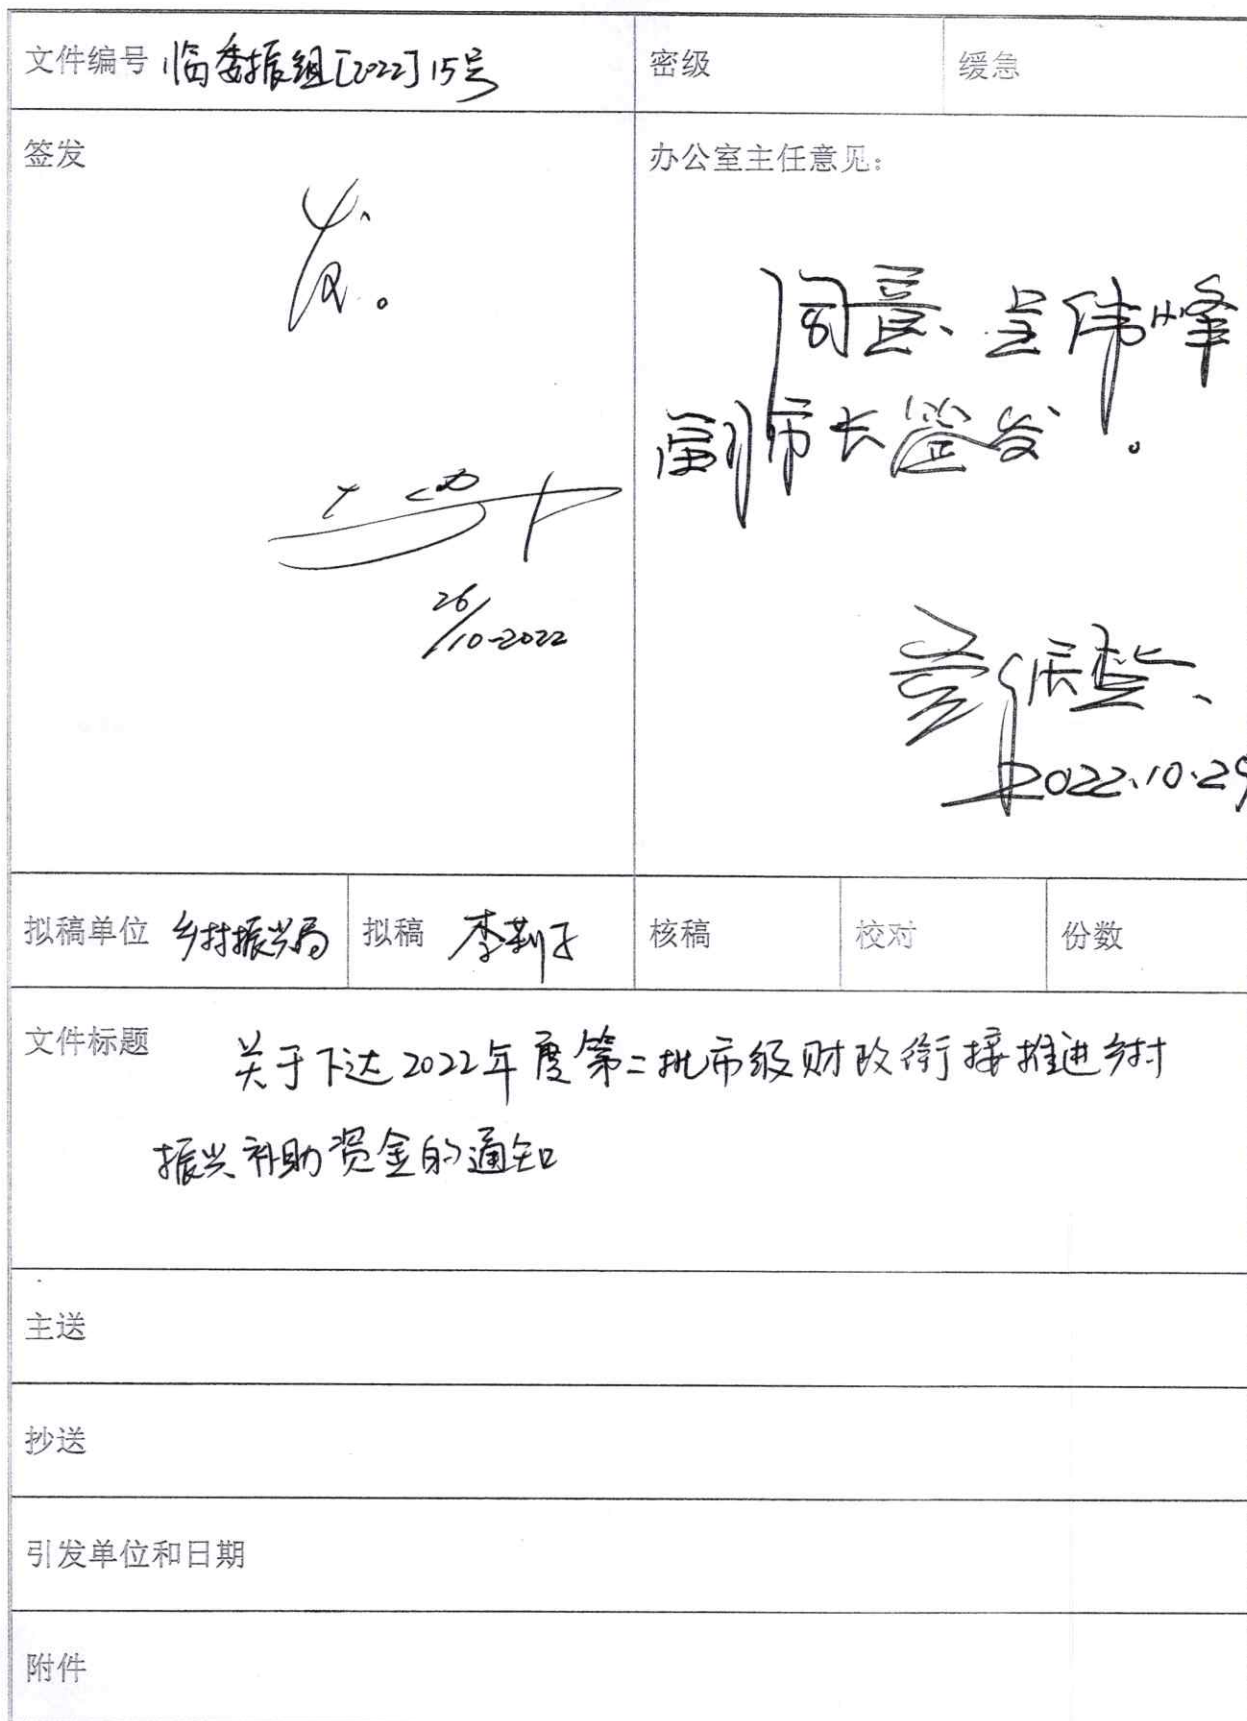 文件编号 临委振组[2022]15号 密级 缓急
签发 办公室主任意见：
发。
同意、呈伟峰
副市长签发。
26/10-2022
2022.10.29
拟稿单位 乡村振兴局 拟稿 李莉子 核稿 校对 份数
文件标题 关于下达2022年度第二批市级财政衔接推进乡村
振兴补助资金的通知
主送
抄送
引发单位和日期
附件